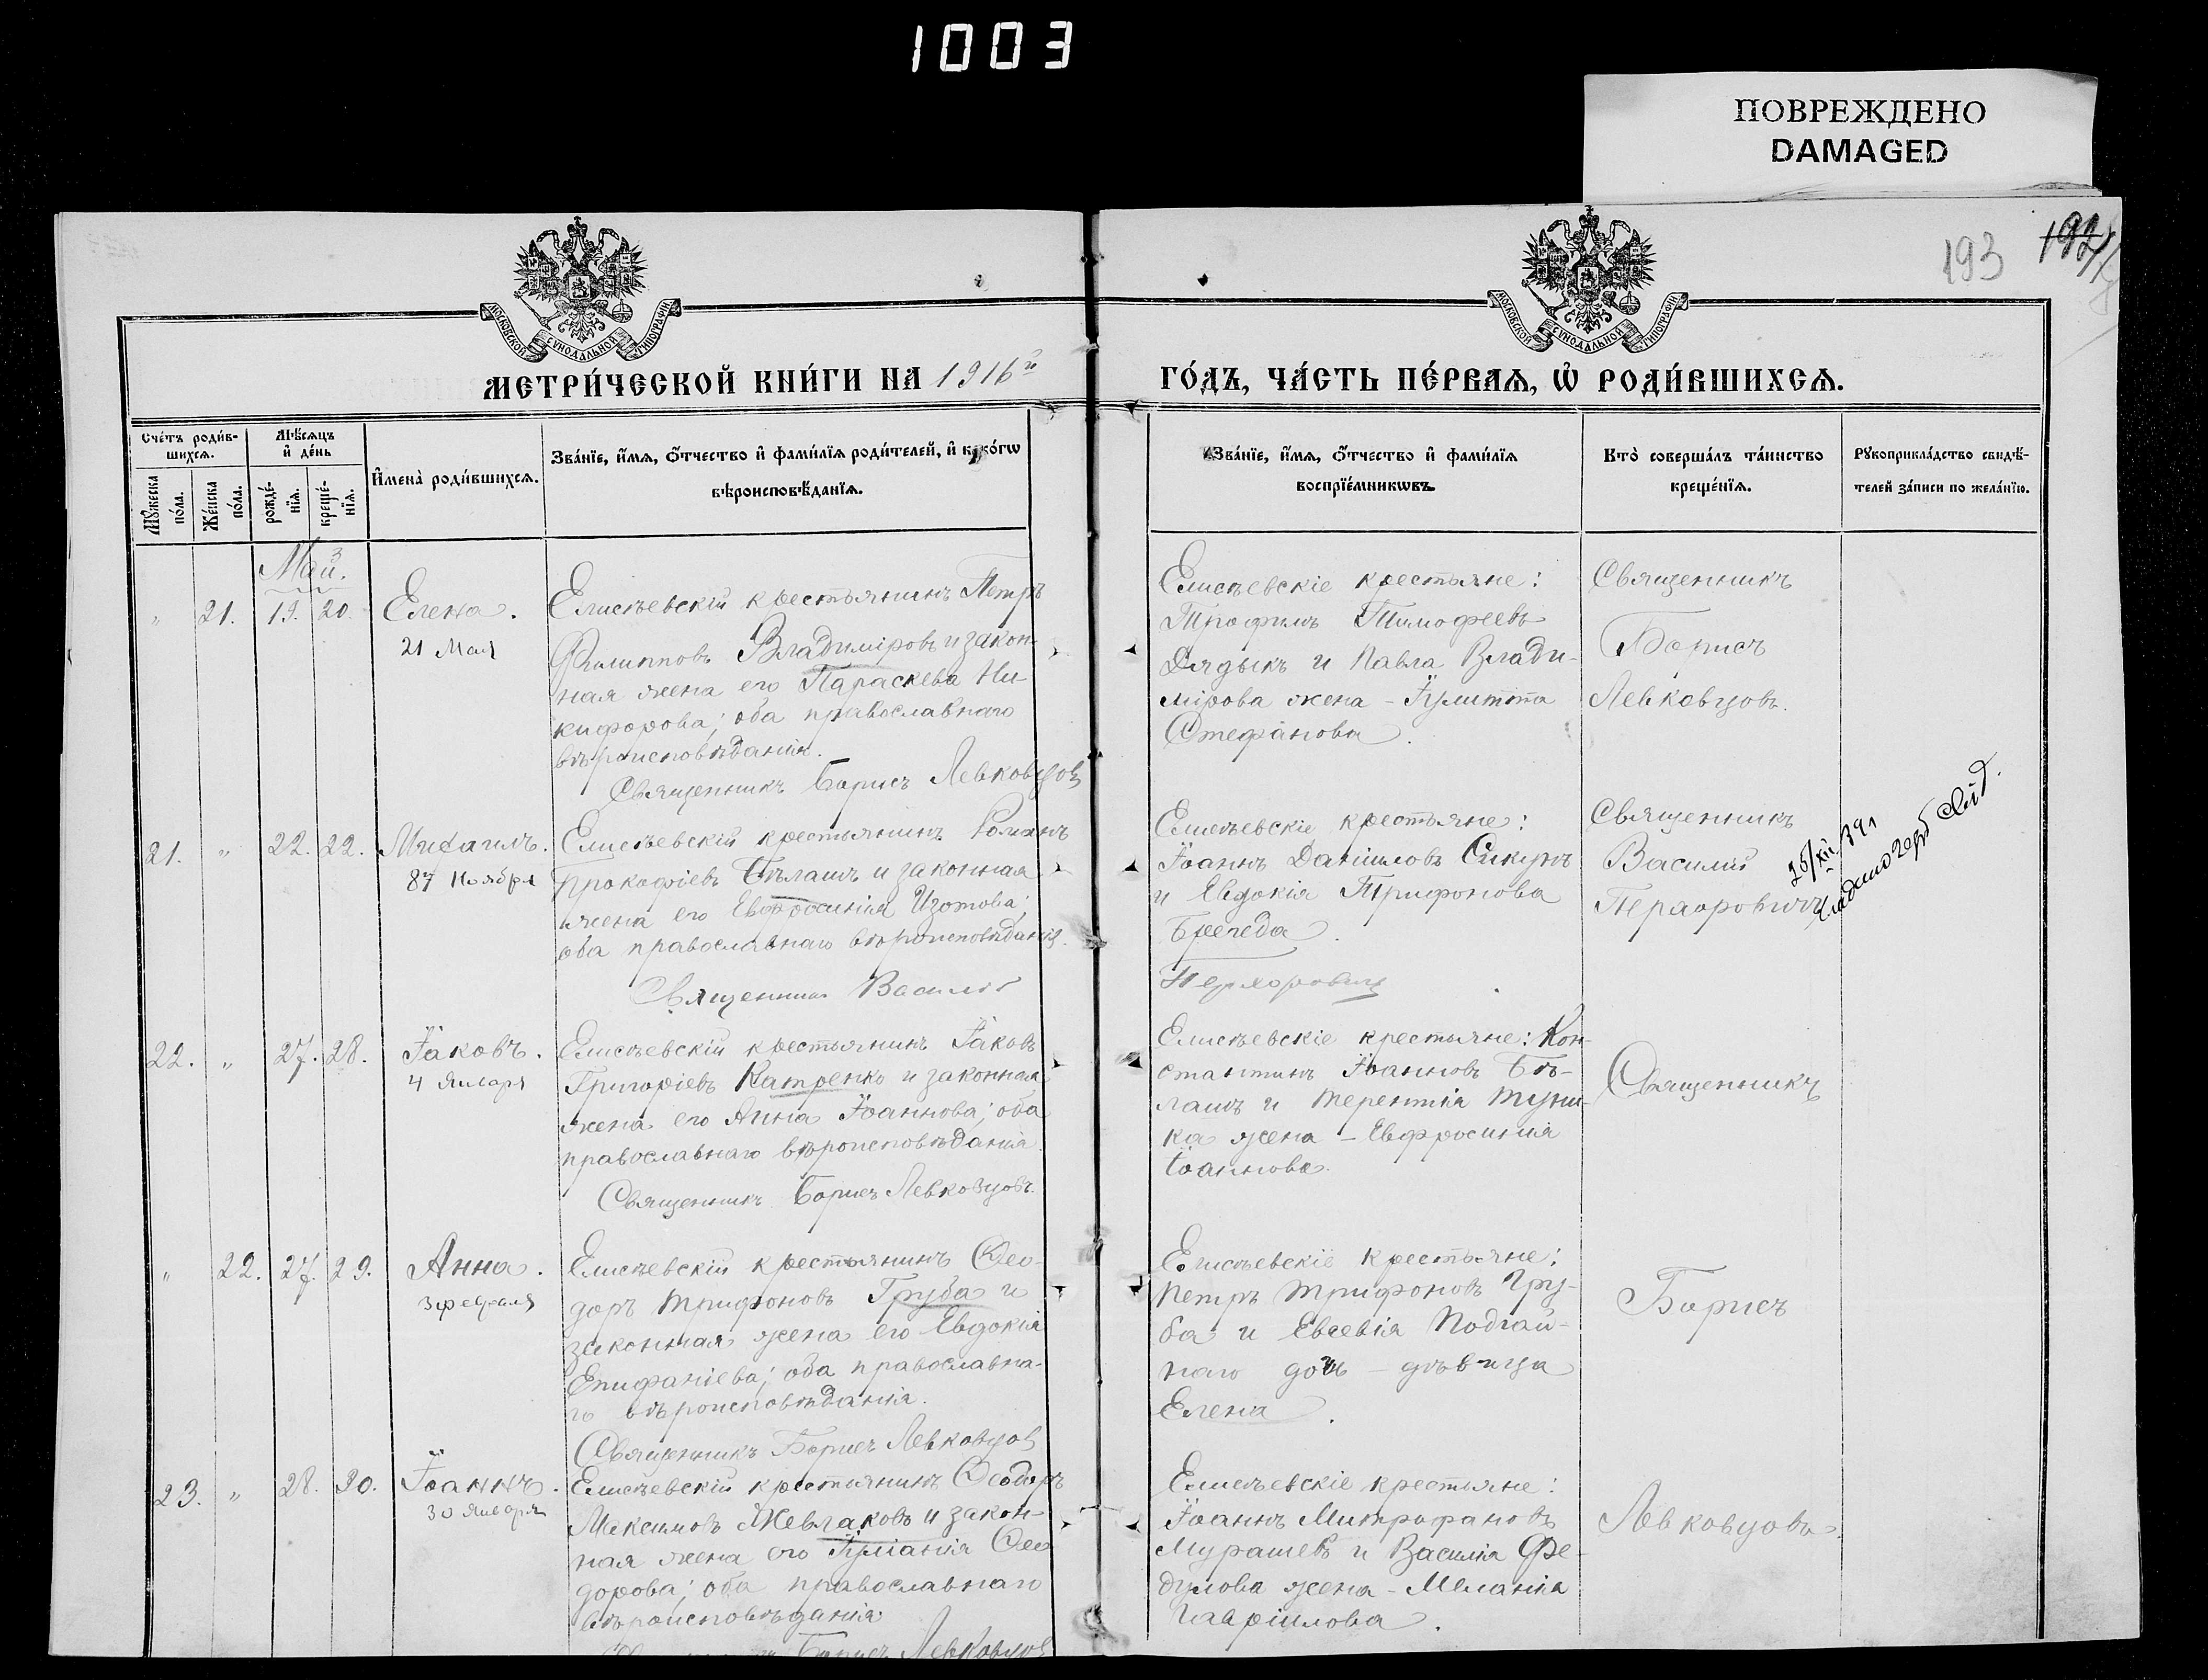 1003
ПОВРЕЖДЕНО
DAMAGED
193
МОСКОВСКОЙ СѴНОДАЛЬНОЙ ТИПОГРАФІИ
МОСКОВСКОЙ СѴНОДАЛЬНОЙ ТИПОГРАФІИ
МЕТРИ́ЧЕСКОЙ КНИ́ГИ НА 1916й
ГО́ДЪ, ЧА́СТЬ ПЕ́РВАѦ, Ѡ҆ РОДИ́ВШИХСѦ.
Сче́тъ роди́в-
шихсѧ.
Мѣ́сѧцъ
и҆ де́нь
Мꙋ́жеска по́ла.
Же́нска по́ла.
рожде́-нїѧ.
креще́-нїѧ.
И҆мена̀ роди́вшихсѧ.
Зва́нїе, и҆́мѧ, ѻ҆́тчество и҆ фами́лїѧ роди́телей, и҆ како́гѡ
вѣроисповѣ́данїѧ.
Зва́нїе, и҆́мѧ, ѻ҆́тчество и҆ фами́лїѧ
воспрїе́мникѡвъ.
Кто̀ соверша́лъ та́инство
креще́нїѧ.
Рꙋкоприкла́дство свидѣ́-
телей за́писи по жела́нїю.
Май.
" 21. 19. 20. Елена.
21 Мая
Елисѣевскій крестьянинъ Петръ
Филипповъ Владиміровъ и закон-
ная жена его Параскева Ни-
кифорова; оба православнаго
вѣроисповѣданія.
Священникъ Борисъ Левковцовъ
Елисѣевскіе крестьяне:
Трофимъ Тимофеевъ
Дядыкъ и Павла Влади-
мірова жена - Іулитта
Стефанова.
Священникъ
Борисъ
Левковцовъ.
21. " 22. 22. Михаилъ.
Ноября
Елисѣевскій крестьянинъ Романъ
Прокофіевъ Бѣлашъ и законная
жена его Евфросинія Изотова;
оба православнаго вѣроисповѣданія.
Священникъ Василій
Елисѣевскіе крестьяне:
Іоаннъ Даніиловъ Сикунъ
и Евдокія Трифонова
Брегеда.
Священникъ
Василій
22. " 27. 28. Іаковъ.
4 Января
Елисѣевскій крестьянинъ Іаковъ
Григоріевъ Катренко и законная
жена его Анна Іоаннова; оба
православнаго вѣроисповѣданія.
Священникъ Борисъ Левковцовъ.
Елисѣевскіе крестьяне: Кон-
стантинъ Іоанновъ Бѣ-
лашъ и Терентія Туни-
ка жена - Евфросинія
Іоаннова.
Священникъ
" 22. 27. 29. Анна.
3 февраля
Елисѣевскій крестьянинъ Ѳео-
доръ Трифоновъ Груба и
законная жена его Евдокія
Епифаніева; оба православна-
го вѣроисповѣданія.
Священникъ Борисъ Левковцовъ
Елисѣевскіе крестьяне:
Петръ Трифоновъ Гру-
ба и Евсевія Подгай-
наго дочь - дѣвица
Елена.
Борисъ
23. " 28. 30. Іоаннъ.
30 Января
Елисѣевскій крестьянинъ Ѳеодоръ
Максимовъ Жевлаковъ и закон-
ная жена его Іуліанія Ѳео
дорова; оба православнаго
вѣроисповѣданія
Борисъ Левковцовъ
Елисѣевскіе крестьяне:
Іоаннъ Митрофановъ
Мурашевъ и Василія Фе-
дулова жена - Меланія
Гавріилова.
Левковцовъ.